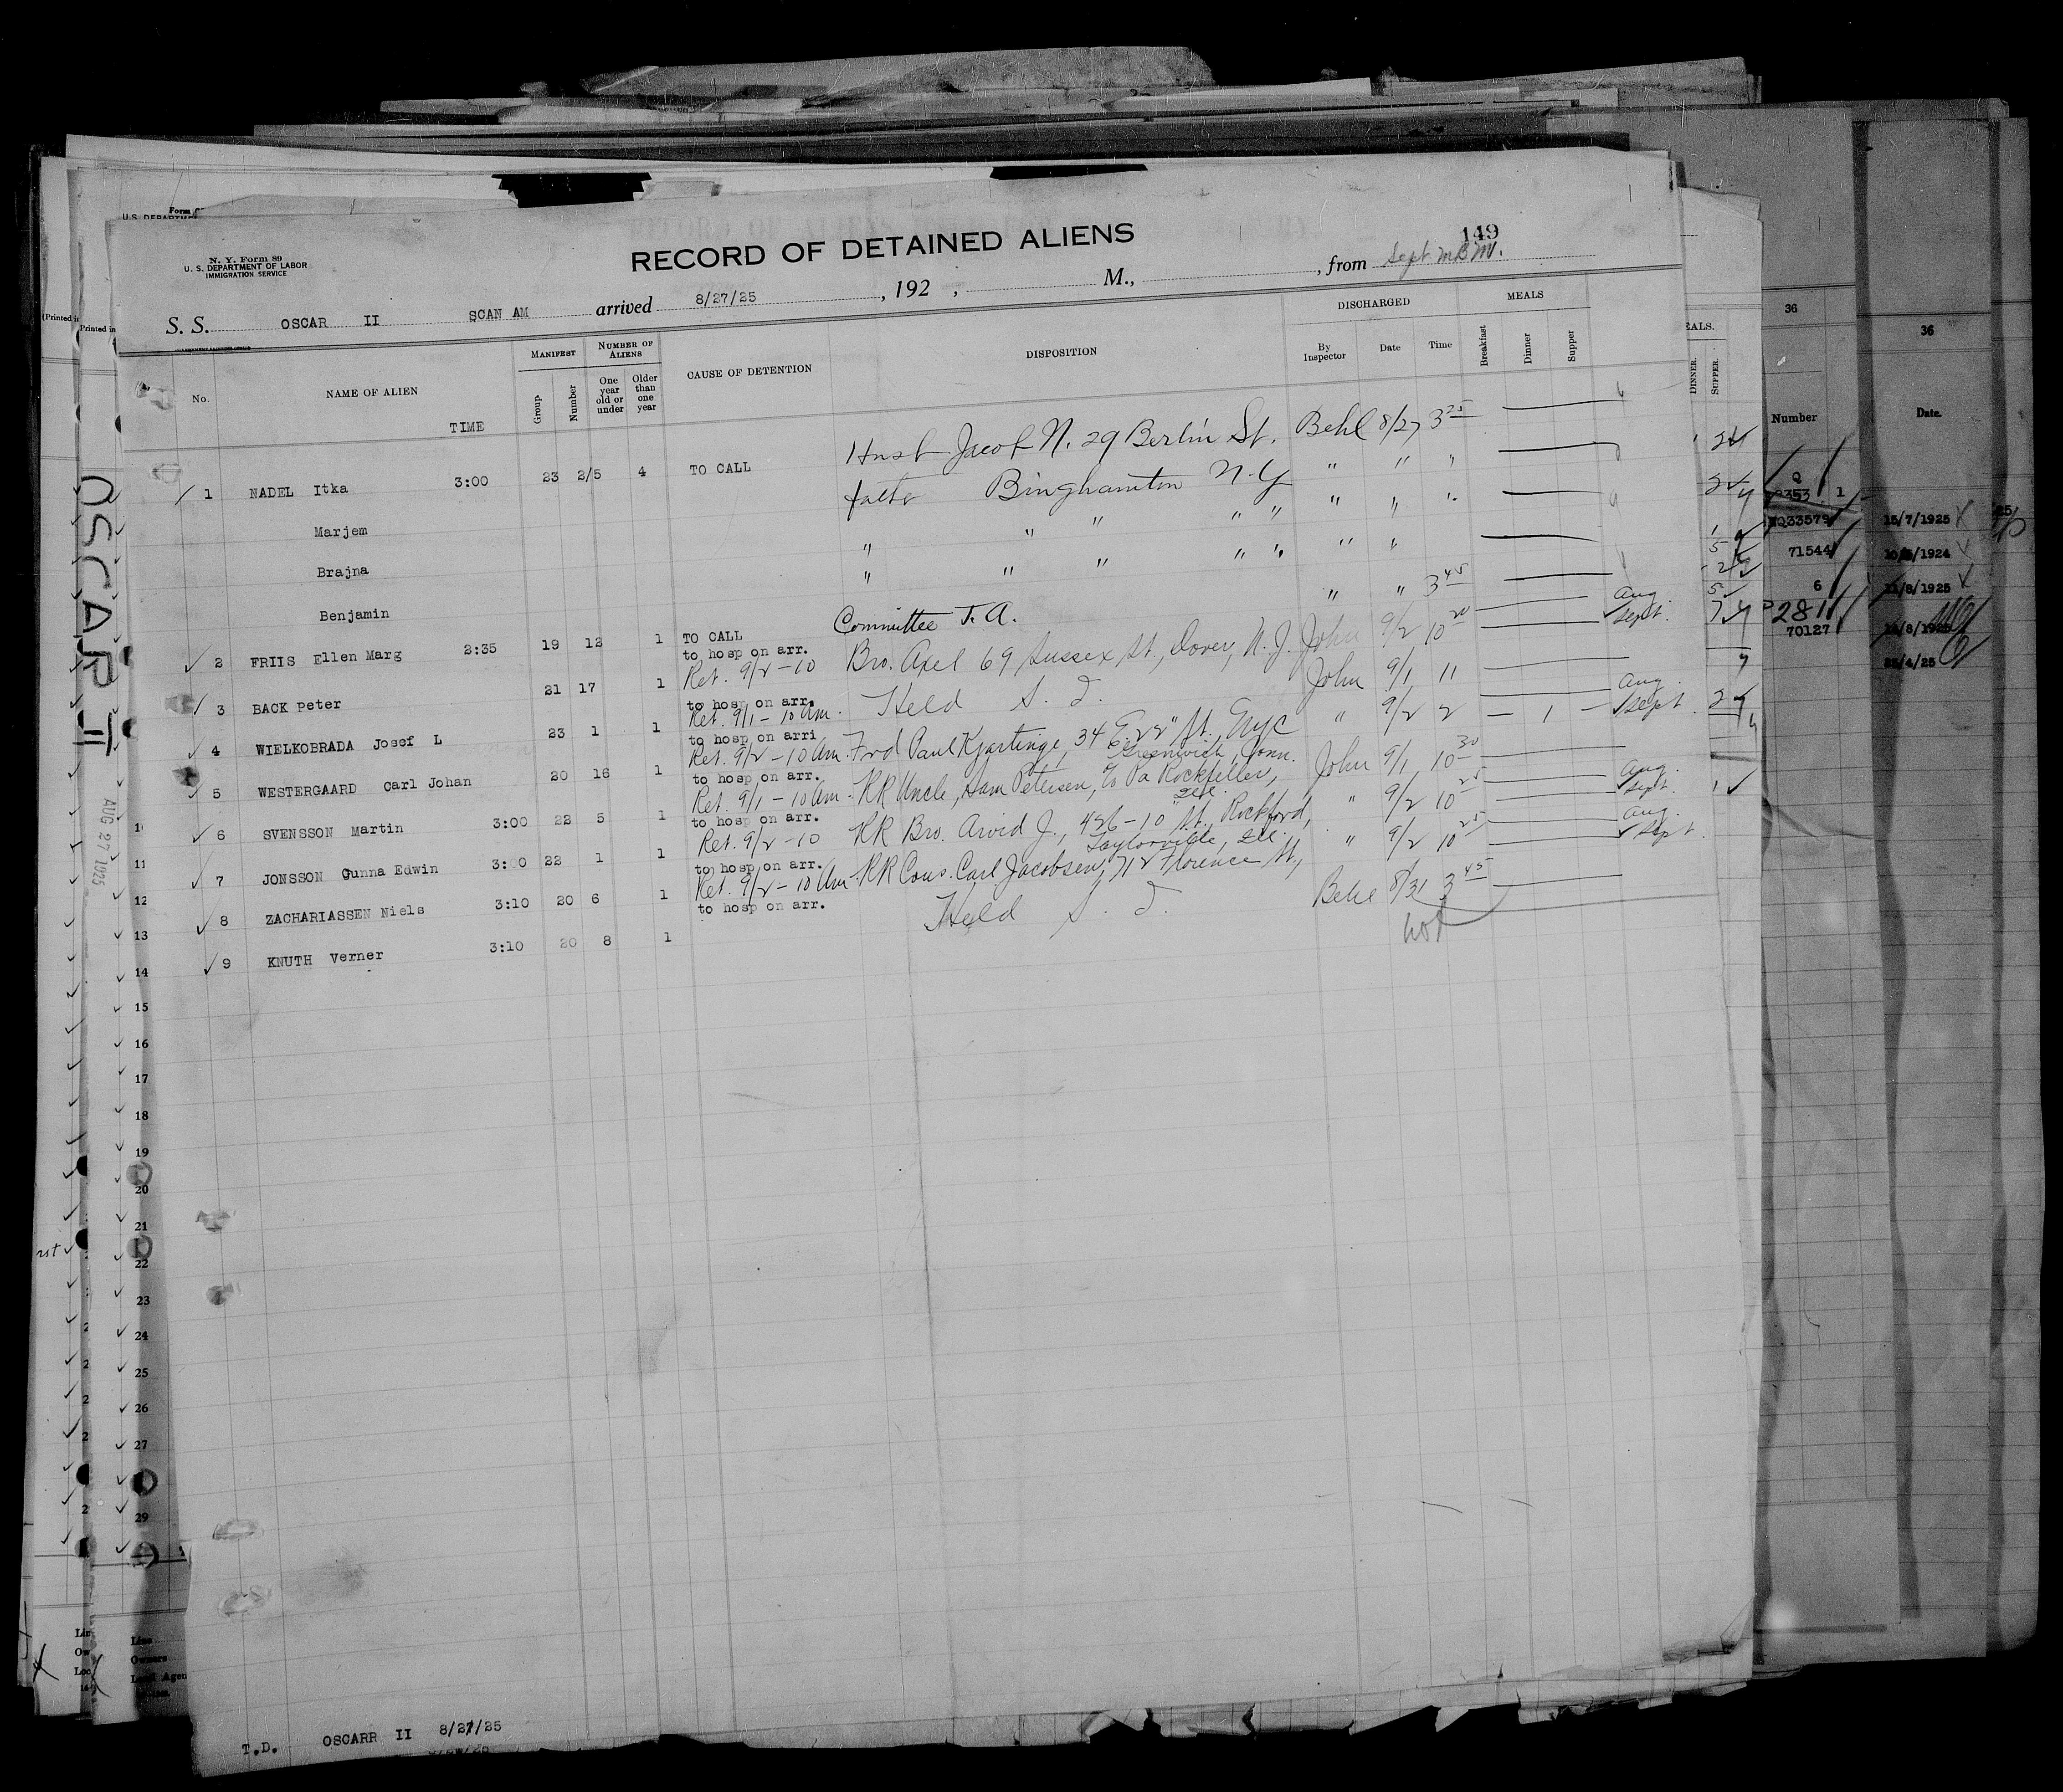 N. Y. Form 89
U. S. DEPARTMENT OF LABOR
IMMIGRATION SERVICE
RECORD OF DETAINED ALIENS
149
S. S. OSCAR II SCAN AM arrived 8/27/25, 192 , M., from Sept
No. NAME OF ALIEN TIME MANIFEST Group Number NUMBER OF ALIENS One year old or under Older than one year CAUSE OF DETENTION DISPOSITION DISCHARGED By Inspector Date Time MEALS Breakfast Dinner Supper
1 NADEL Itka 3:00 23 2/5 4 TO CALL Husb Jacob N. 29 Berlin St. Behl 8/27 3 25
Marjem father Binghamton N.Y " " "
Brajna " " " " " " " "
Benjamin " " " " " " "
2 FRIIS Ellen Marg 2:35 19 12 1 TO CALL Committee T. A. " " 3 45
3 BACK Peter 21 17 1 to hosp on arr. Ret. 9/2 - 10 Bro. Axel 69 Sussex St., Dover, N. J. John 9/2 10 20 Aug. Sept.
4 WIELKOBRADA Josef L 23 1 1 to hosp on arr. Ret. 9/1 - 10 am. Held S. I. John 9/1 11
5 WESTERGAARD Carl Johan 20 16 1 to hosp on arri Ret. 9/2 - 10 am. Frd Paul 34 E. 22" St. Nyc " 9/2 2 1 Aug. Sept.
6 SVENSSON Martin 3:00 22 5 1 to hosp on arr. Ret. 9/1 - 10 am. RR Uncle, Sam Petersen, c/o Pa Rockfeller, Greenwich, Conn. John 9/1 10 30
7 JONSSON Gunna Edwin 3:00 22 1 1 to hosp on arr. Ret. 9/2 - 10 RR Bro. Arvid J., 426 - 10" St., Rockford, Ill. " 9/2 10 25 Aug. Sept.
8 ZACHARIASSEN Niels 3:10 20 6 1 to hosp on arr. Ret. 9/2 - 10 am. RR Cous. Carl Jacobsen, 712 Florence St., Taylorville, Ill. " 9/2 10 25 Aug. Sept.
9 KNUTH Verner 3:10 20 8 1 to hosp on arr. Held S. I. Behl 8/31 3 45
T.D. OSCARR II 8/27/25
OSCAR II
AUG 27 1925
11
12
13
14
15
16
17
18
19
20
21
22
23
24
25
26
27
28
29
Line
Owners
DINNER.
SUPPER.
36
Number
33579
71544
6
281
70127
36
Date.
15/7/1925